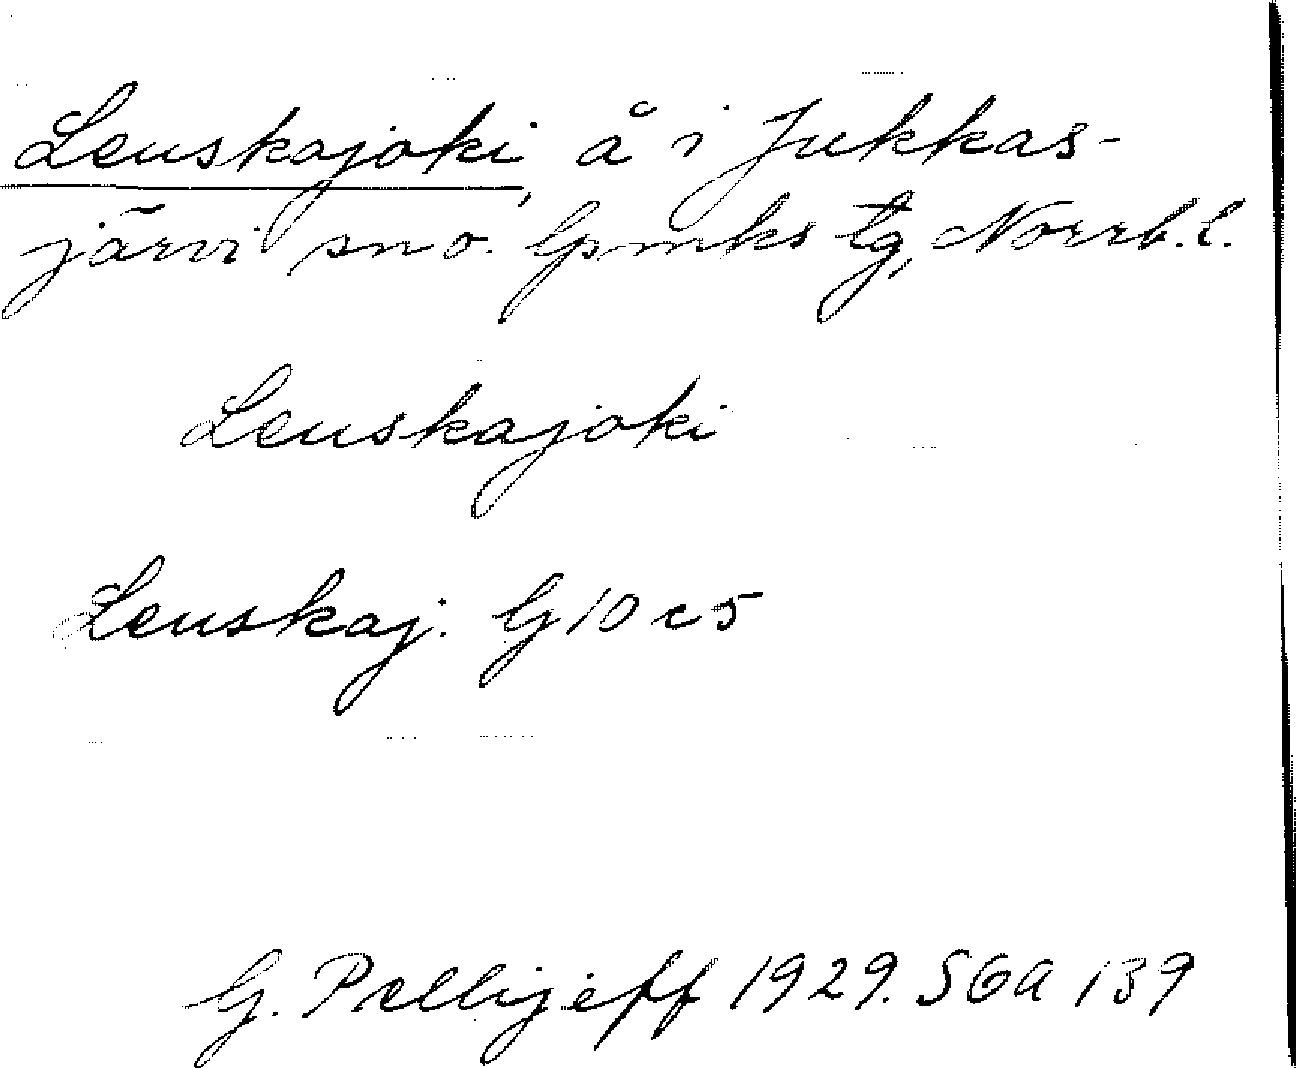 Leuskajoki, å i Jukkas-
järvi sn o. Gpmks tg, Norrb.l.
Leuskajoki
Leuskaj. G 10 c 5
G. Pellijeff 1929. SGA 139